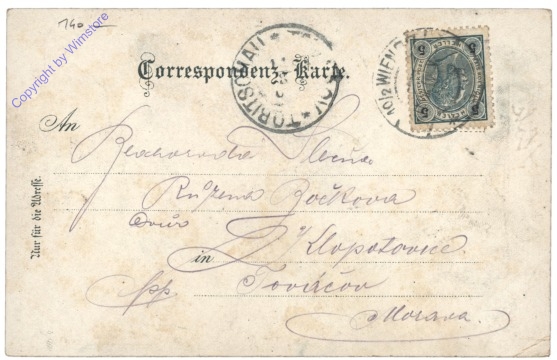 140
Copyright by Wimstore
Correspondenz-Karte.
TOBITSCHAU * TOV
WIEN
5 5
5 5
An
Nur für die Adresse.
Blahorodá Slečna
Růžena Bočkova
Dvůr
in Klopotovice
pp Tovačov
Morava